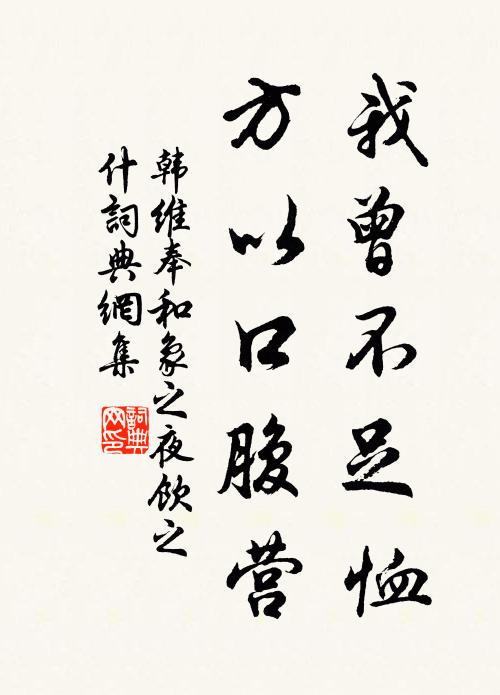 我曾不足恤
方以口腹营
韩维奉和象之夜饮之
什詞典網集
詞典网印